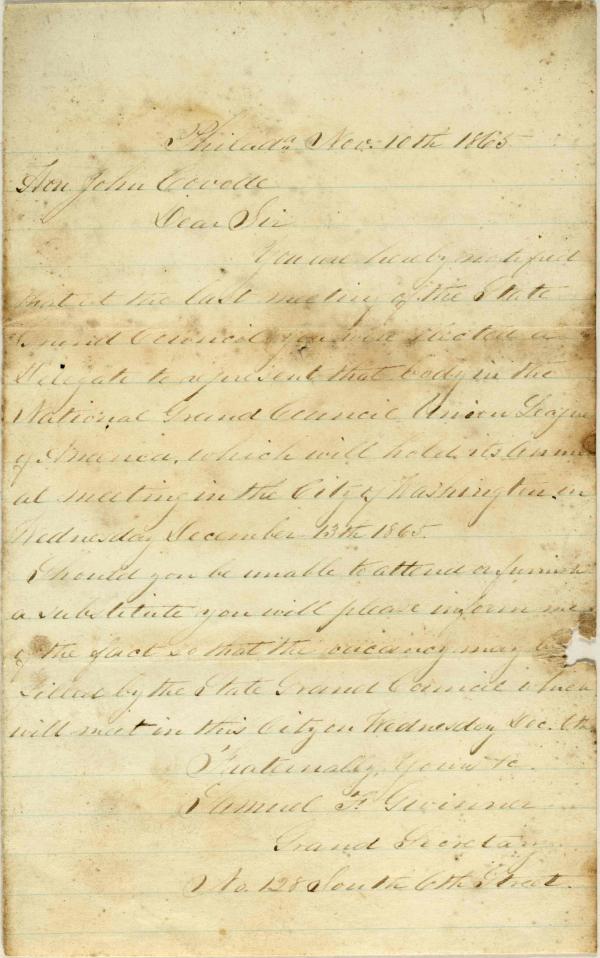 Philada Nov. 10th 1865
Hon John Covode
Dear Sir
You are hereby notified
that at the last meeting of the State
Grand Council you were elected a
Delegate to represent that body in the
National Grand Council Union League
of America, which will hold its annu
al meeting in the City of Washington on
Wednesday December 13th 1865.
Should you be unable to attend or furnish
a substitute you will please inform me
of the fact so that the vacancy may be
filled by the State Grand Council which
will meet in this City on Wednesday Dec. 6th
Fraternally Yours &c
Samuel F. Gwinner
Grand Secretary
No. 128 South 6th Street.